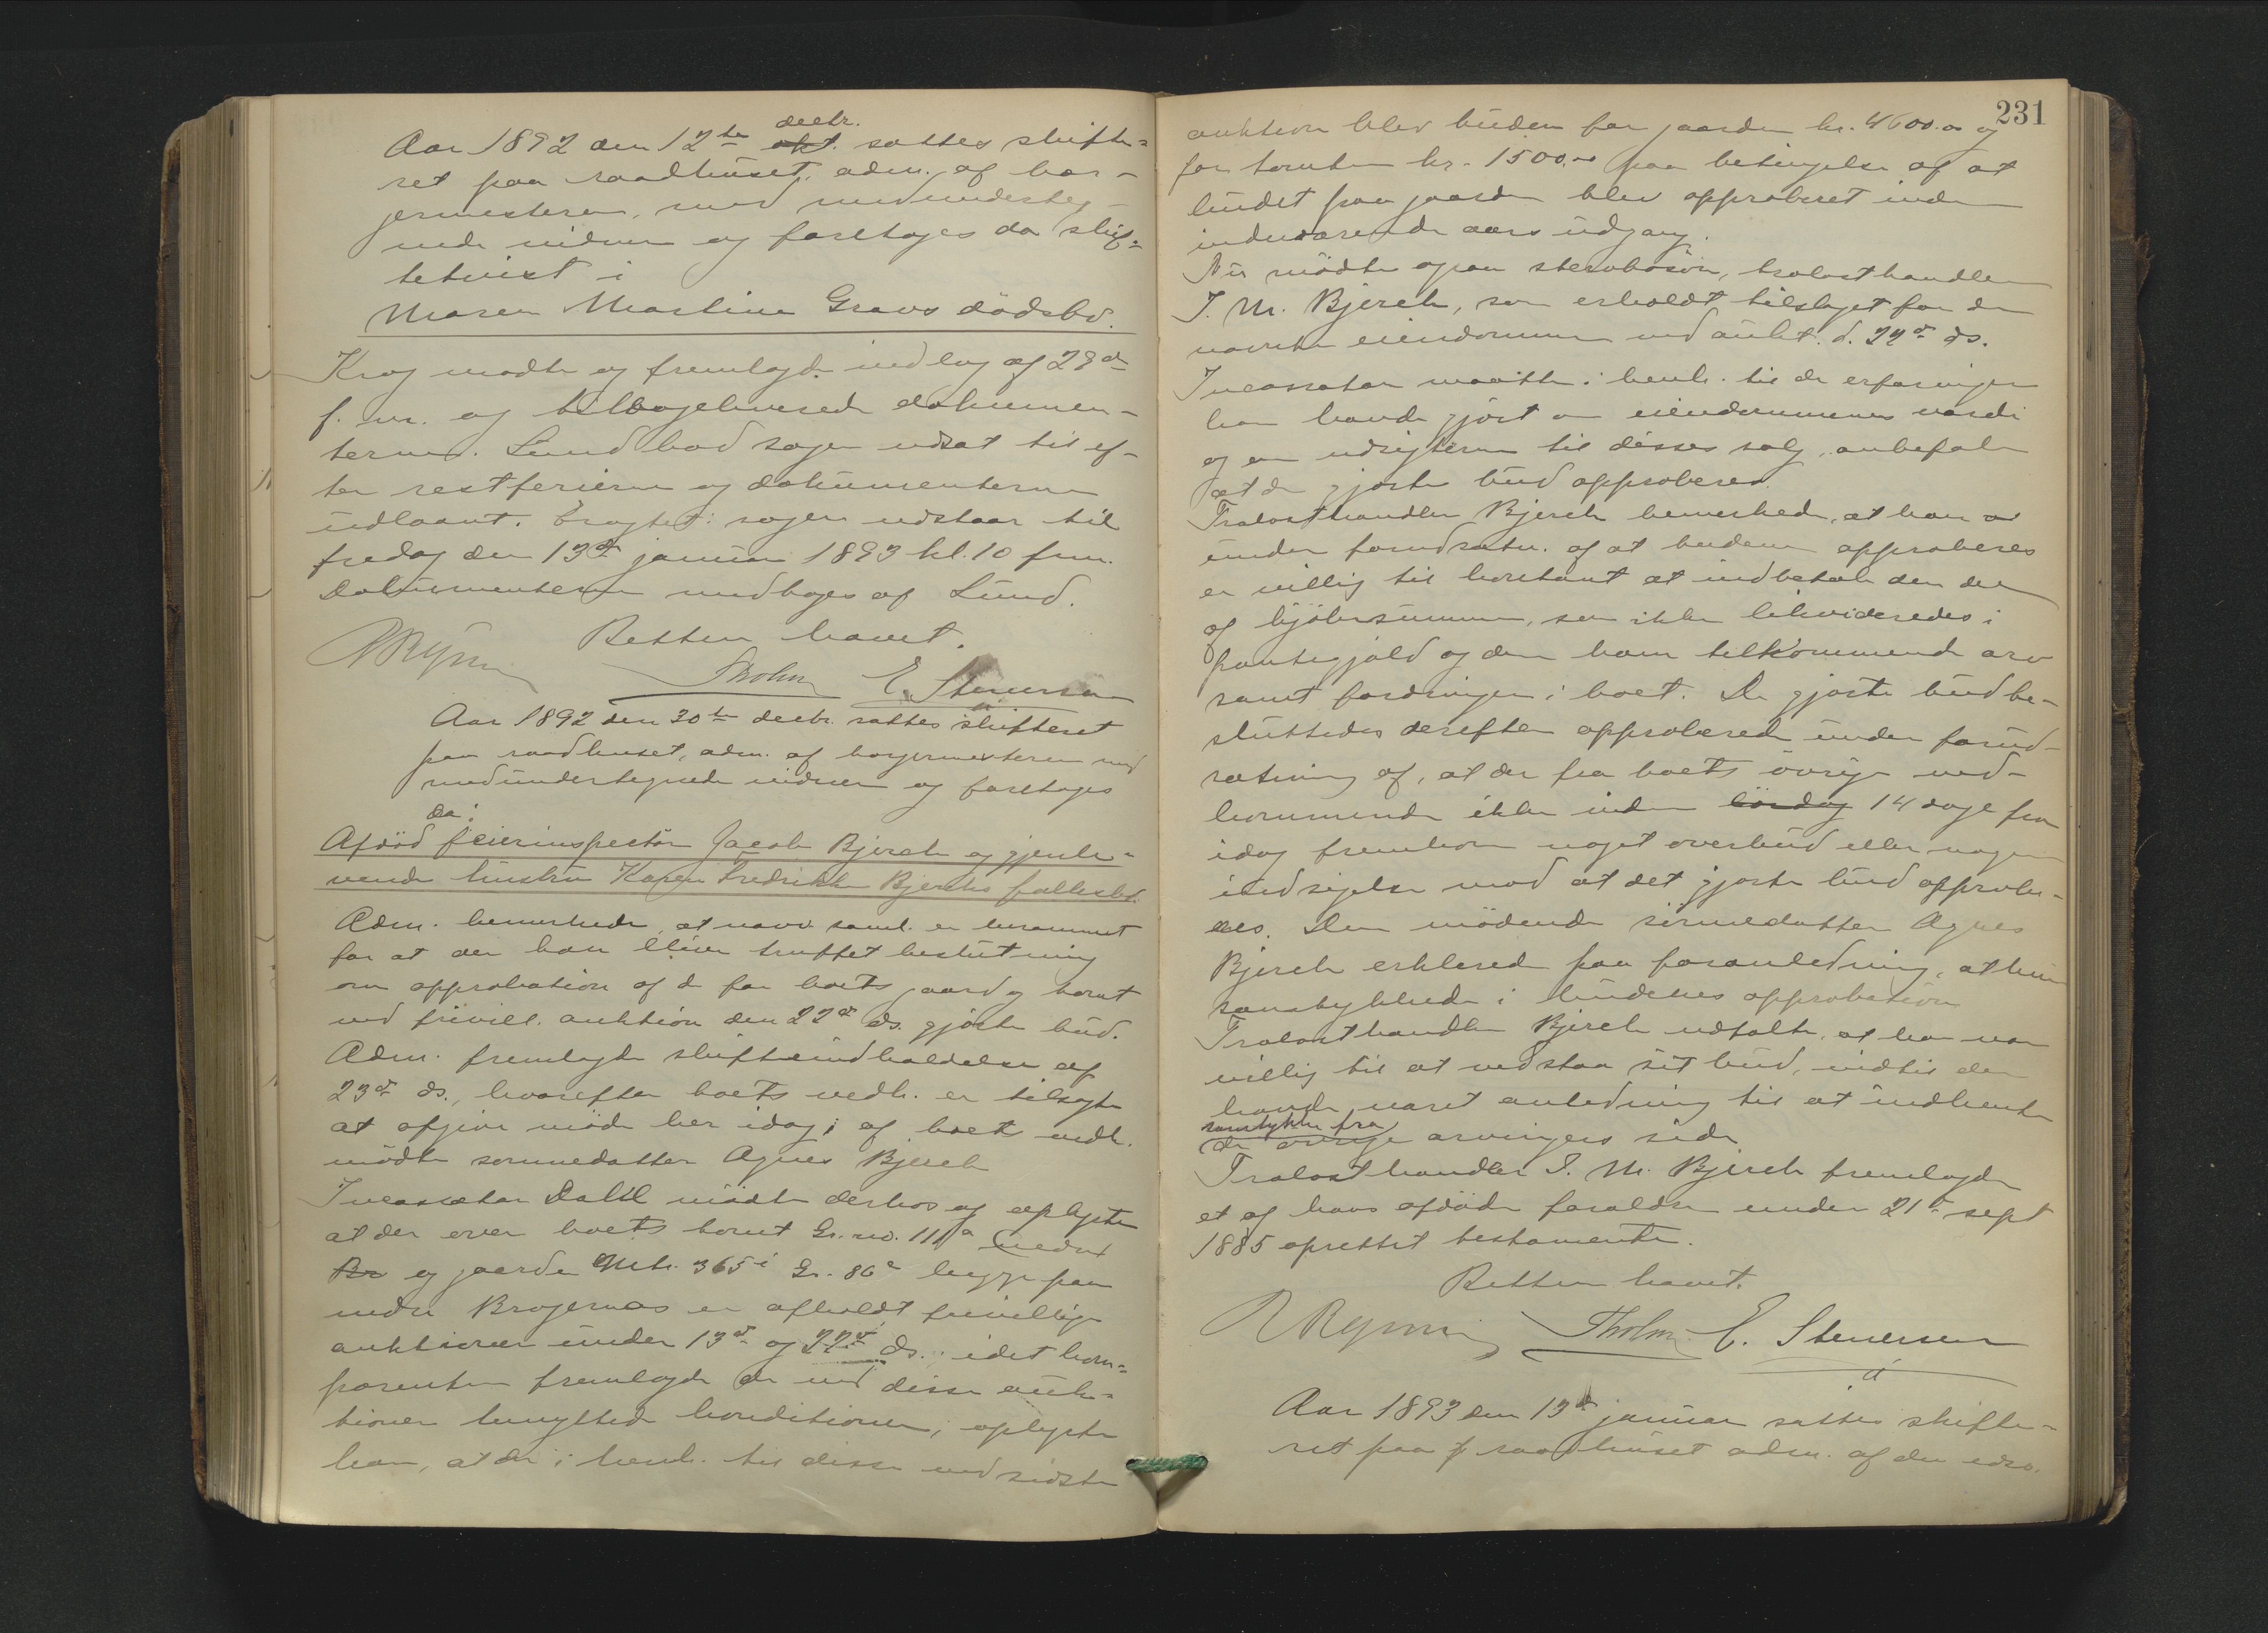 Aar 1892 den 12te decbr. okt. sattes skifte-
ret paa raadhuset, adm. af bor-
germesteren, med medunderteg-
nede vidner og foretoges da skif-
tetvist i
Maren Martine Gravs dödsbo.
Krog mødte og fremlagde indlæg af 28de
f. m. og tilbageleverede dokumen-
terne. Lund bad sagen udsat til ef-
ter retsferierne og dokumenterne
udlaant. Eragtet: sagen udstaar til
fredag den 13de januar 1893 kl. 10 fm.
Dokumenterne medtages af Lund.
Retten hævet.
Tholm E. Stenersen
Aar 1892 den 30te decbr. sattes skifteret
paa raadhuset, adm. af borgermesteren med
medundertegnede vidner og foretoges
da i
Afdöd feierinspectör Jacob Bjerch og gjenle-
vende hustru Karen Fredrikke Bjerchs fællesbo.
Adm. bemerkede, at nærv. saml. er berammet
for at der kan blive truffet beslutning
om approbation af de for boets gaard og tomt
ved frivill. auktion den 22de ds. gjorte bud.
Adm. fremlagde skifteindkaldelse af
23de ds., hvorefter boets vedk. er tilsagte
at afgive möde her idag; af boets vedk.
mödte sønnedatter Agnes Bjerch
Incassator Dahl mödte derhos og oplyste
at der over boets tomt Gr. no. 111a nedre
Br og gaarden Mtr. 365 i Gr. 86a begge paa
nedre Bragernæs er afholdt frivillige
auktioner under 13de og 22de ds., idet kom-
parenten fremlagde de ved disse auk-
tioner benyttede konditioner; oplyste
han, at der i henh. til disse ved sidste
231
auktion blev buden for gaarden kr. 4600.00 og
for tomten kr. 1500.00 paa betingelse af at
budet paa gaarden blev approberet inden
indeværende aars udgang.
Nu mödte ogsaa stervbosön, trælasthandler
J. M. Bjerch, som erholdt tilslaget for de
nævnte eiendomme ved aukt. d. 22de ds.
Incassator maatte i henh. til de erfaringer
han havde gjort om eiendommenes værdi
og om udsigterne til disses salg, anbefale
at de gjorte bud approberes.
Trælasthandler Bjerch bemerkede, at han
under forudsætn. af at budene approberes
er villig til kontant at indbetale den del
af kjöbesummen, som ikke likvideredes i
pantegjæld og den ham tilkommende arv
samt fordringer i boet. De gjorte bud be-
sluttedes derefter approberede under forud-
sætning af, at der fra boets övrige ved-
kommende ikke inden lördag 14 dage fra
idag fremkom noget overbud eller nogen
indsigelse mod at det gjorte bud approbe-
res. Den mödende sönnedatter Agnes
Bjerch erklærede paa foranledning, at hun
samtykkede i budenes approbation
Trælasthandler Bjerch udtalte, at han var
villig til at vedstaa sit bud, indtil der
havde været anledning til at indhente
samtykke fra
de övrige arvingers side
Trælasthandler J. M. Bjerch fremlagde
et af hans afdöde forældre under 21de sept
1885 oprettet testamente.
Retten hævet.
Tholm E. Stenersen
Aar 1893 den 13de januar sattes skifte-
ret paa raadhuset adm. af den edsv.